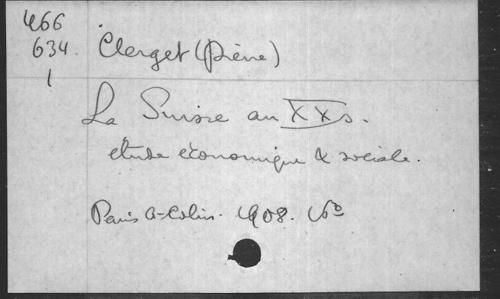 466
634.
1
Clerget (Pierre)
La Suisse au XXs.
étude économique & sociale.
Paris A-Colin. 1908.